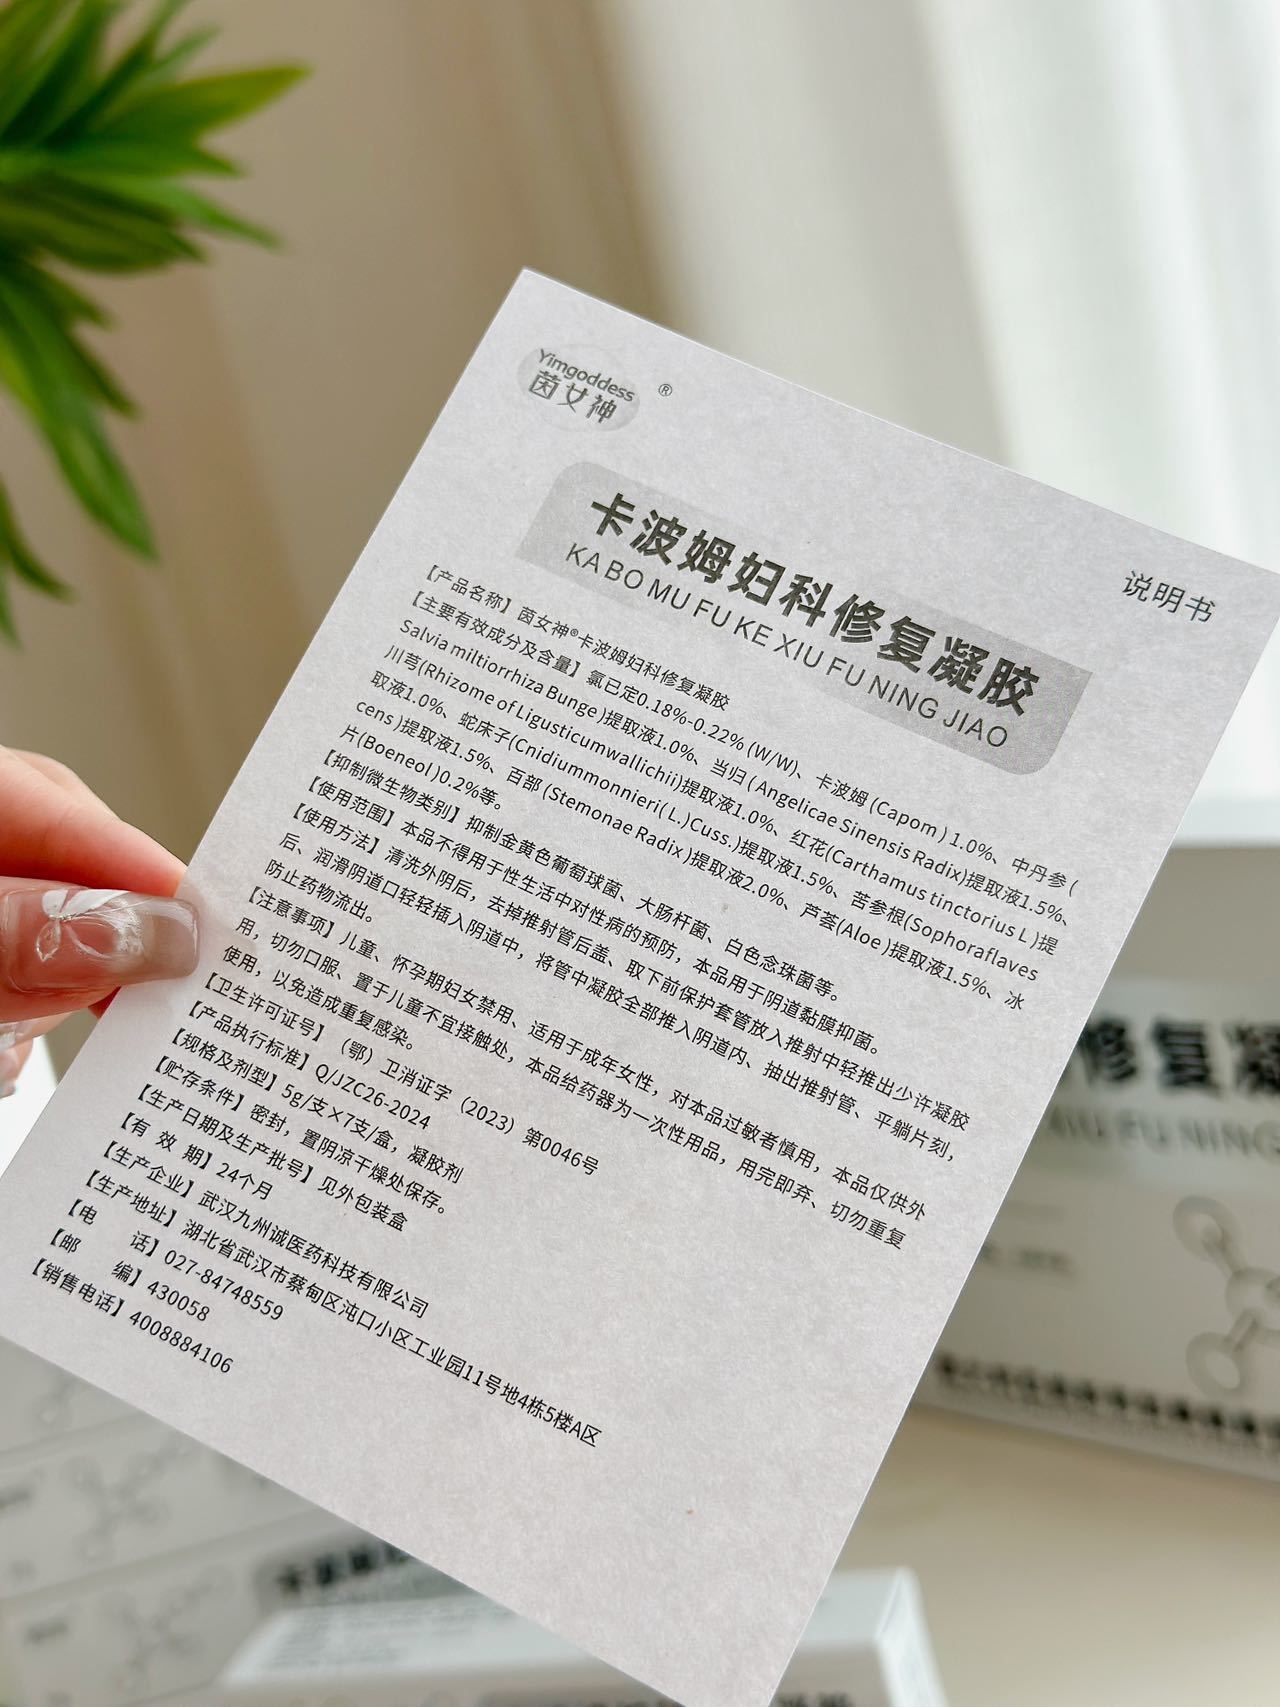 Yimgoddess
茵女神
®
卡波姆妇科修复凝胶
KA BO MU FU KE XIU FU NING JIAO
说明书
【产品名称】茵女神®卡波姆妇科修复凝胶
【主要有效成分及含量】氯已定0.18%-0.22% (W/W)、卡波姆 (Capom ) 1.0%、中丹参 (
Salvia miltiorrhiza Bunge )提取液1.0%、当归 ( Angelicae Sinensis Radix)提取液1.5%、
川芎(Rhizome of Ligusticumwallichii)提取液1.0%、红花(Carthamus tinctorius L )提
取液1.0%、蛇床子(Cnidiummonnieri( L.)Cuss.)提取液1.5%、苦参根(Sophoraflaves
cens )提取液1.5%、百部 (Stemonae Radix )提取液2.0%、芦荟(Aloe )提取液1.5%、冰
片(Boeneol )0.2%等。
【抑制微生物类别】抑制金黄色葡萄球菌、大肠杆菌、白色念珠菌等。
【使用范围】本品不得用于性生活中对性病的预防，本品用于阴道黏膜抑菌。
【使用方法】清洗外阴后，去掉推射管后盖、取下前保护套管放入推射中轻推出少许凝胶
后、润滑阴道口轻轻插入阴道中，将管中凝胶全部推入阴道内、抽出推射管、平躺片刻，
防止药物流出。
【注意事项】儿童、怀孕期妇女禁用、适用于成年女性，对本品过敏者慎用，本品仅供外
用，切勿口服、置于儿童不宜接触处，本品给药器为一次性用品，用完即弃、切勿重复
使用，以免造成重复感染。
【卫生许可证号】（鄂）卫消证字（2023）第0046号
【产品执行标准】Q/JZC26-2024
【规格及剂型】5g/支×7支/盒，凝胶剂
【贮存条件】密封，置阴凉干燥处保存。
【生产日期及生产批号】见外包装盒
【有 效 期】24个月
【生产企业】武汉九州诚医药科技有限公司
【生产地址】湖北省武汉市蔡甸区沌口小区工业园11号地4栋5楼A区
【电 话】027-84748559
【邮 编】430058
【销售电话】4008884106
修复凝
XIU FU NING